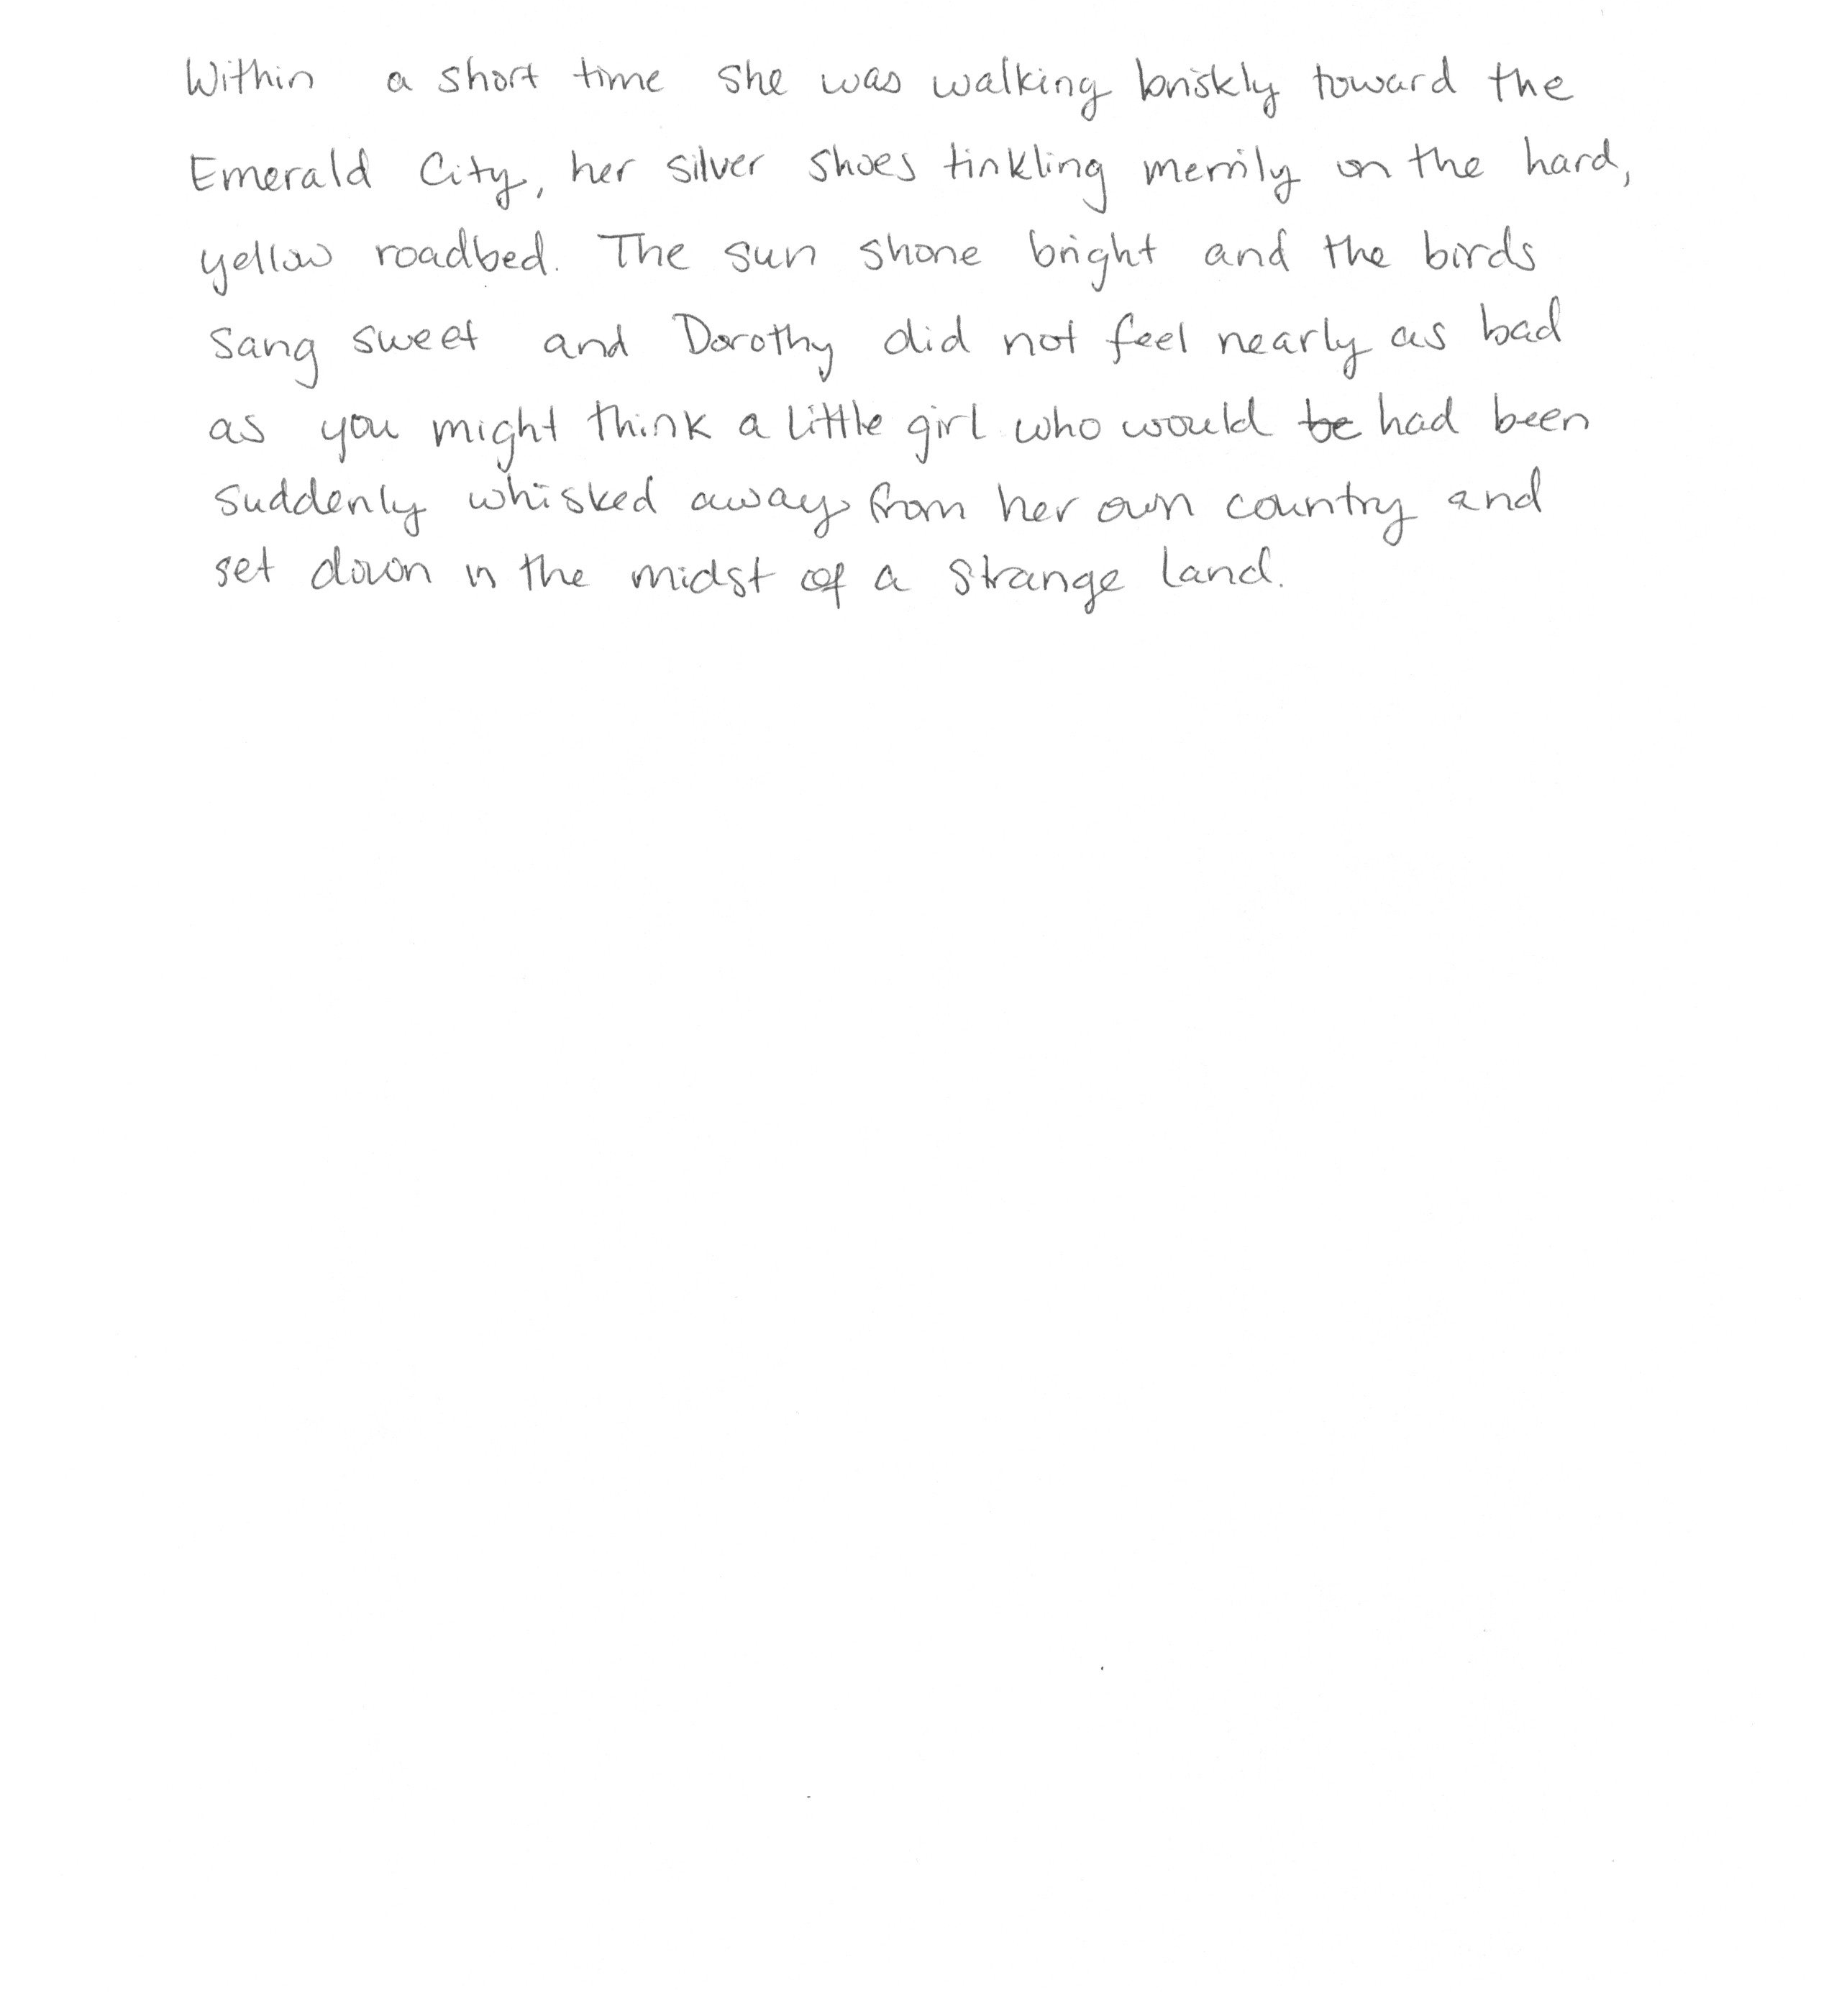 Within a short time she was walking briskly toward the
Emerald City, her silver shoes tinkling merrily on the hard,
yellow roadbed. The sun shone bright and the birds
sang sweet and Dorothy did not feel nearly as bad
as you might think a little girl who would be had been
suddenly whisked away from her own country and
set down in the midst of a strange land.